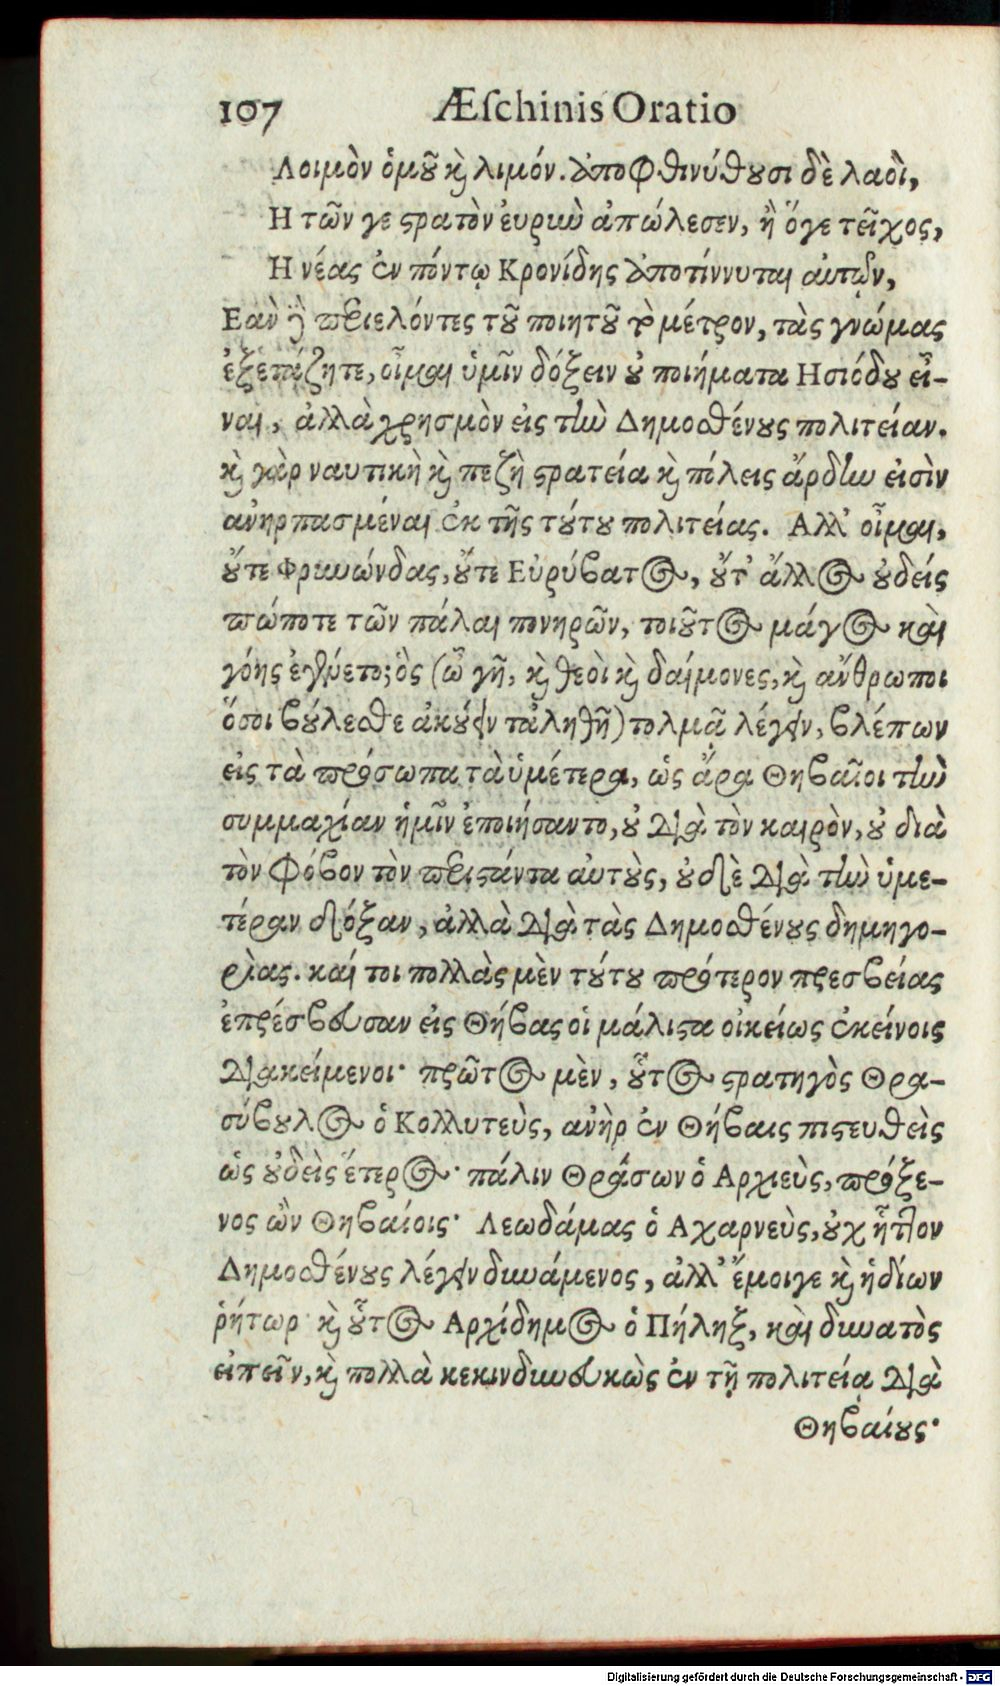 107 Æſchinis Oratio
Λοιμὸν ὁμοῦ καὶ λιμόν. ἀποφθινύθουσι δὲ λαοὶ,
Η τῶν γε στρατὸν ἐυρυὼ ἀπώλεσεν, ἢ ὅγε τεῖχος,
Η νέας ἐν πόντῳ Κρονίδης ἀποτίννυται αὐτῶν,
Εαν περιελόντες τοῦ ποιητοῦ τὸ μέτρον, τὰς γνώμας
ἐξετάζητε, οἶμαι ὑμῖν δόξειν οὐ ποιήματα Ησιόδου εἶ-
ναι, ἀλλὰ χρησμὸν εἰς τὴν Δημοσθένους πολιτείαν.
καὶ γὰρ ναυτικὴ καὶ πεζὴ στρατεία καὶ πόλεις ἄρδην εἰσὶν
ανηρπασμέναι ἐκ τῆς τούτου πολιτείας. Αλλ' οἶμαι,
οὔτε Φρυνώνδας, οὔτε Εὐρύβατος, οὔτ' ἄλλος οὐδείς
πώποτε τῶν πάλαι πονηρῶν, τοιοῦτος μάγος καὶ
γόης ἐγένετο; ὃς (ὦ γῆ, καὶ θεοὶ καὶ δαίμονες, καὶ ἄνθρωποι
ὅσοι βούλεσθε ἀκούειν τἀληθῆ) τολμᾷ λέγειν, βλέπων
εἰς τὰ πρόσωπα τὰ ὑμέτερα, ὡς ἄρα Θηβαῖοι τὴν
συμμαχίαν ἡμῖν ἐποιήσαντο, οὐ διὰ τὸν καιρὸν, οὐ διὰ
τὸν φόβον τὸν περιστάντα αὐτοὺς, οὐδὲ διὰ τὴν ὑμε-
τέραν δόξαν, ἀλλὰ διὰ τὰς Δημοσθένους δημηγο-
ρίας. καί τοι πολλὰς μὲν τούτου πρότερον πρεσβείας
ἐπρέσβευσαν εἰς Θήβας οἱ μάλιστα οἰκείως ἐκείνοις
διακείμενοι· πρῶτος μὲν, οὗτος στρατηγὸς Θρα-
σύβουλος ὁ Κολλυτεὺς, ανὴρ ἐν Θήβαις πιστευθεὶς
ὡς οὐδεὶς ἕτερος· πάλιν Θράσων ὁ Αρχιεὺς, πρόξε-
νος ὢν Θηβαίοις· Λεωδάμας ὁ Αχαρνεὺς, οὐχ ἧττον
Δημοσθένους λέγειν δυνάμενος, ἀλλ' ἔμοιγε καὶ ἡδίων
ῥήτωρ καὶ οὗτος Αρχίδημος ὁ Πήληξ, καὶ δυνατὸς
εἰπεῖν, καὶ πολλὰ κεκινδυνευκὼς ἐν τῇ πολιτείᾳ διὰ
Θηβαίους·
Digitalisierung gefördert durch die Deutsche Forschungsgemeinschaft - DFG